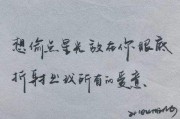 想偷点星光放在你眼底
折射出我所有的爱意.